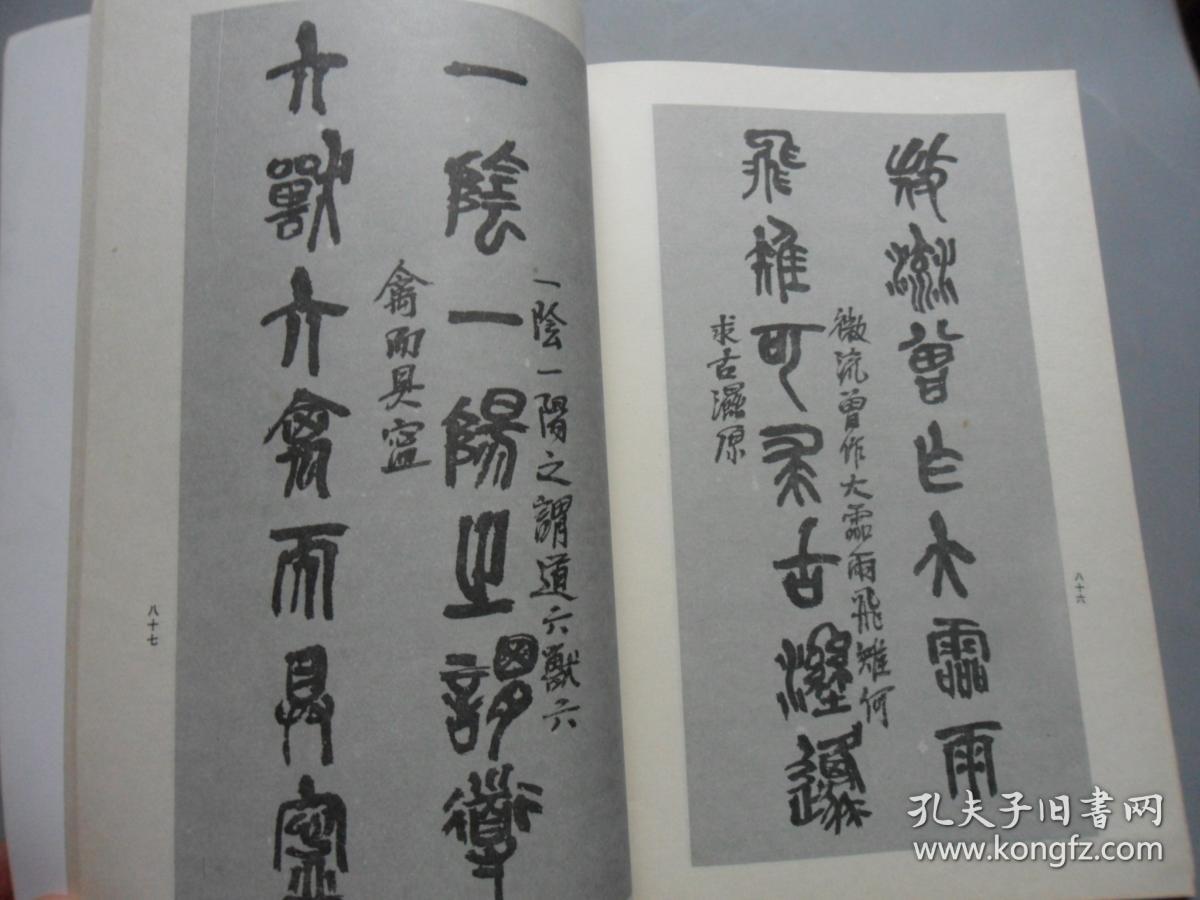 㣲流曾乍大霝雨
飛雉可求古溼邍
微流曾作大霝雨飛雉何
求古濕原
八十六
一陰一陽之謂道
六獸六禽而具寍
一陰一陽之謂道六獸六
禽而具寍
八十七
孔夫子旧书网
www.kongfz.com